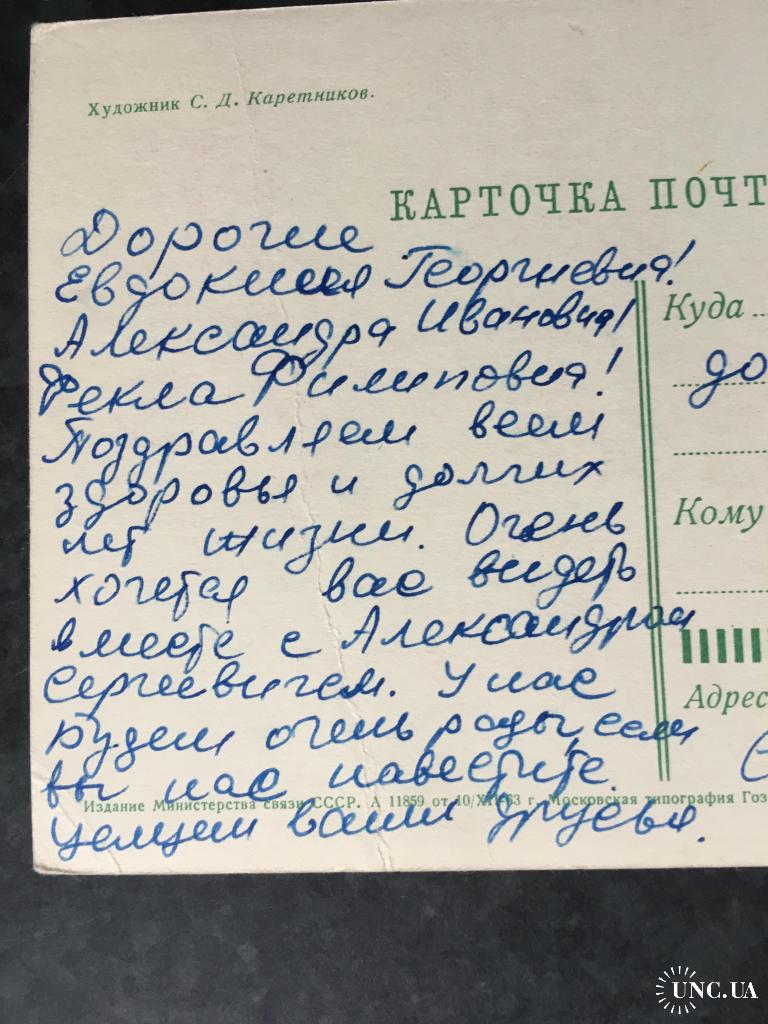 Художник С. Д. Каретников.
КАРТОЧКА ПОЧТ
Дорогие
Евдокимия Георгиевна!
Александра Ивановна!
Фекла Филиповна!
Поздравляем всем
здоровья и долгих
лет жизни. Очень
хочется вас видеть
вместе с Александром
Сергиевичем. У нас
будем очень рады, если
вы нас навестите.
Целуем ваши друзья.
Куда
до
Кому
Адрес
Издание Министерства связи СССР. А 11859 от 10/XII-63 г. Московская типография Гоз
UNC.UA